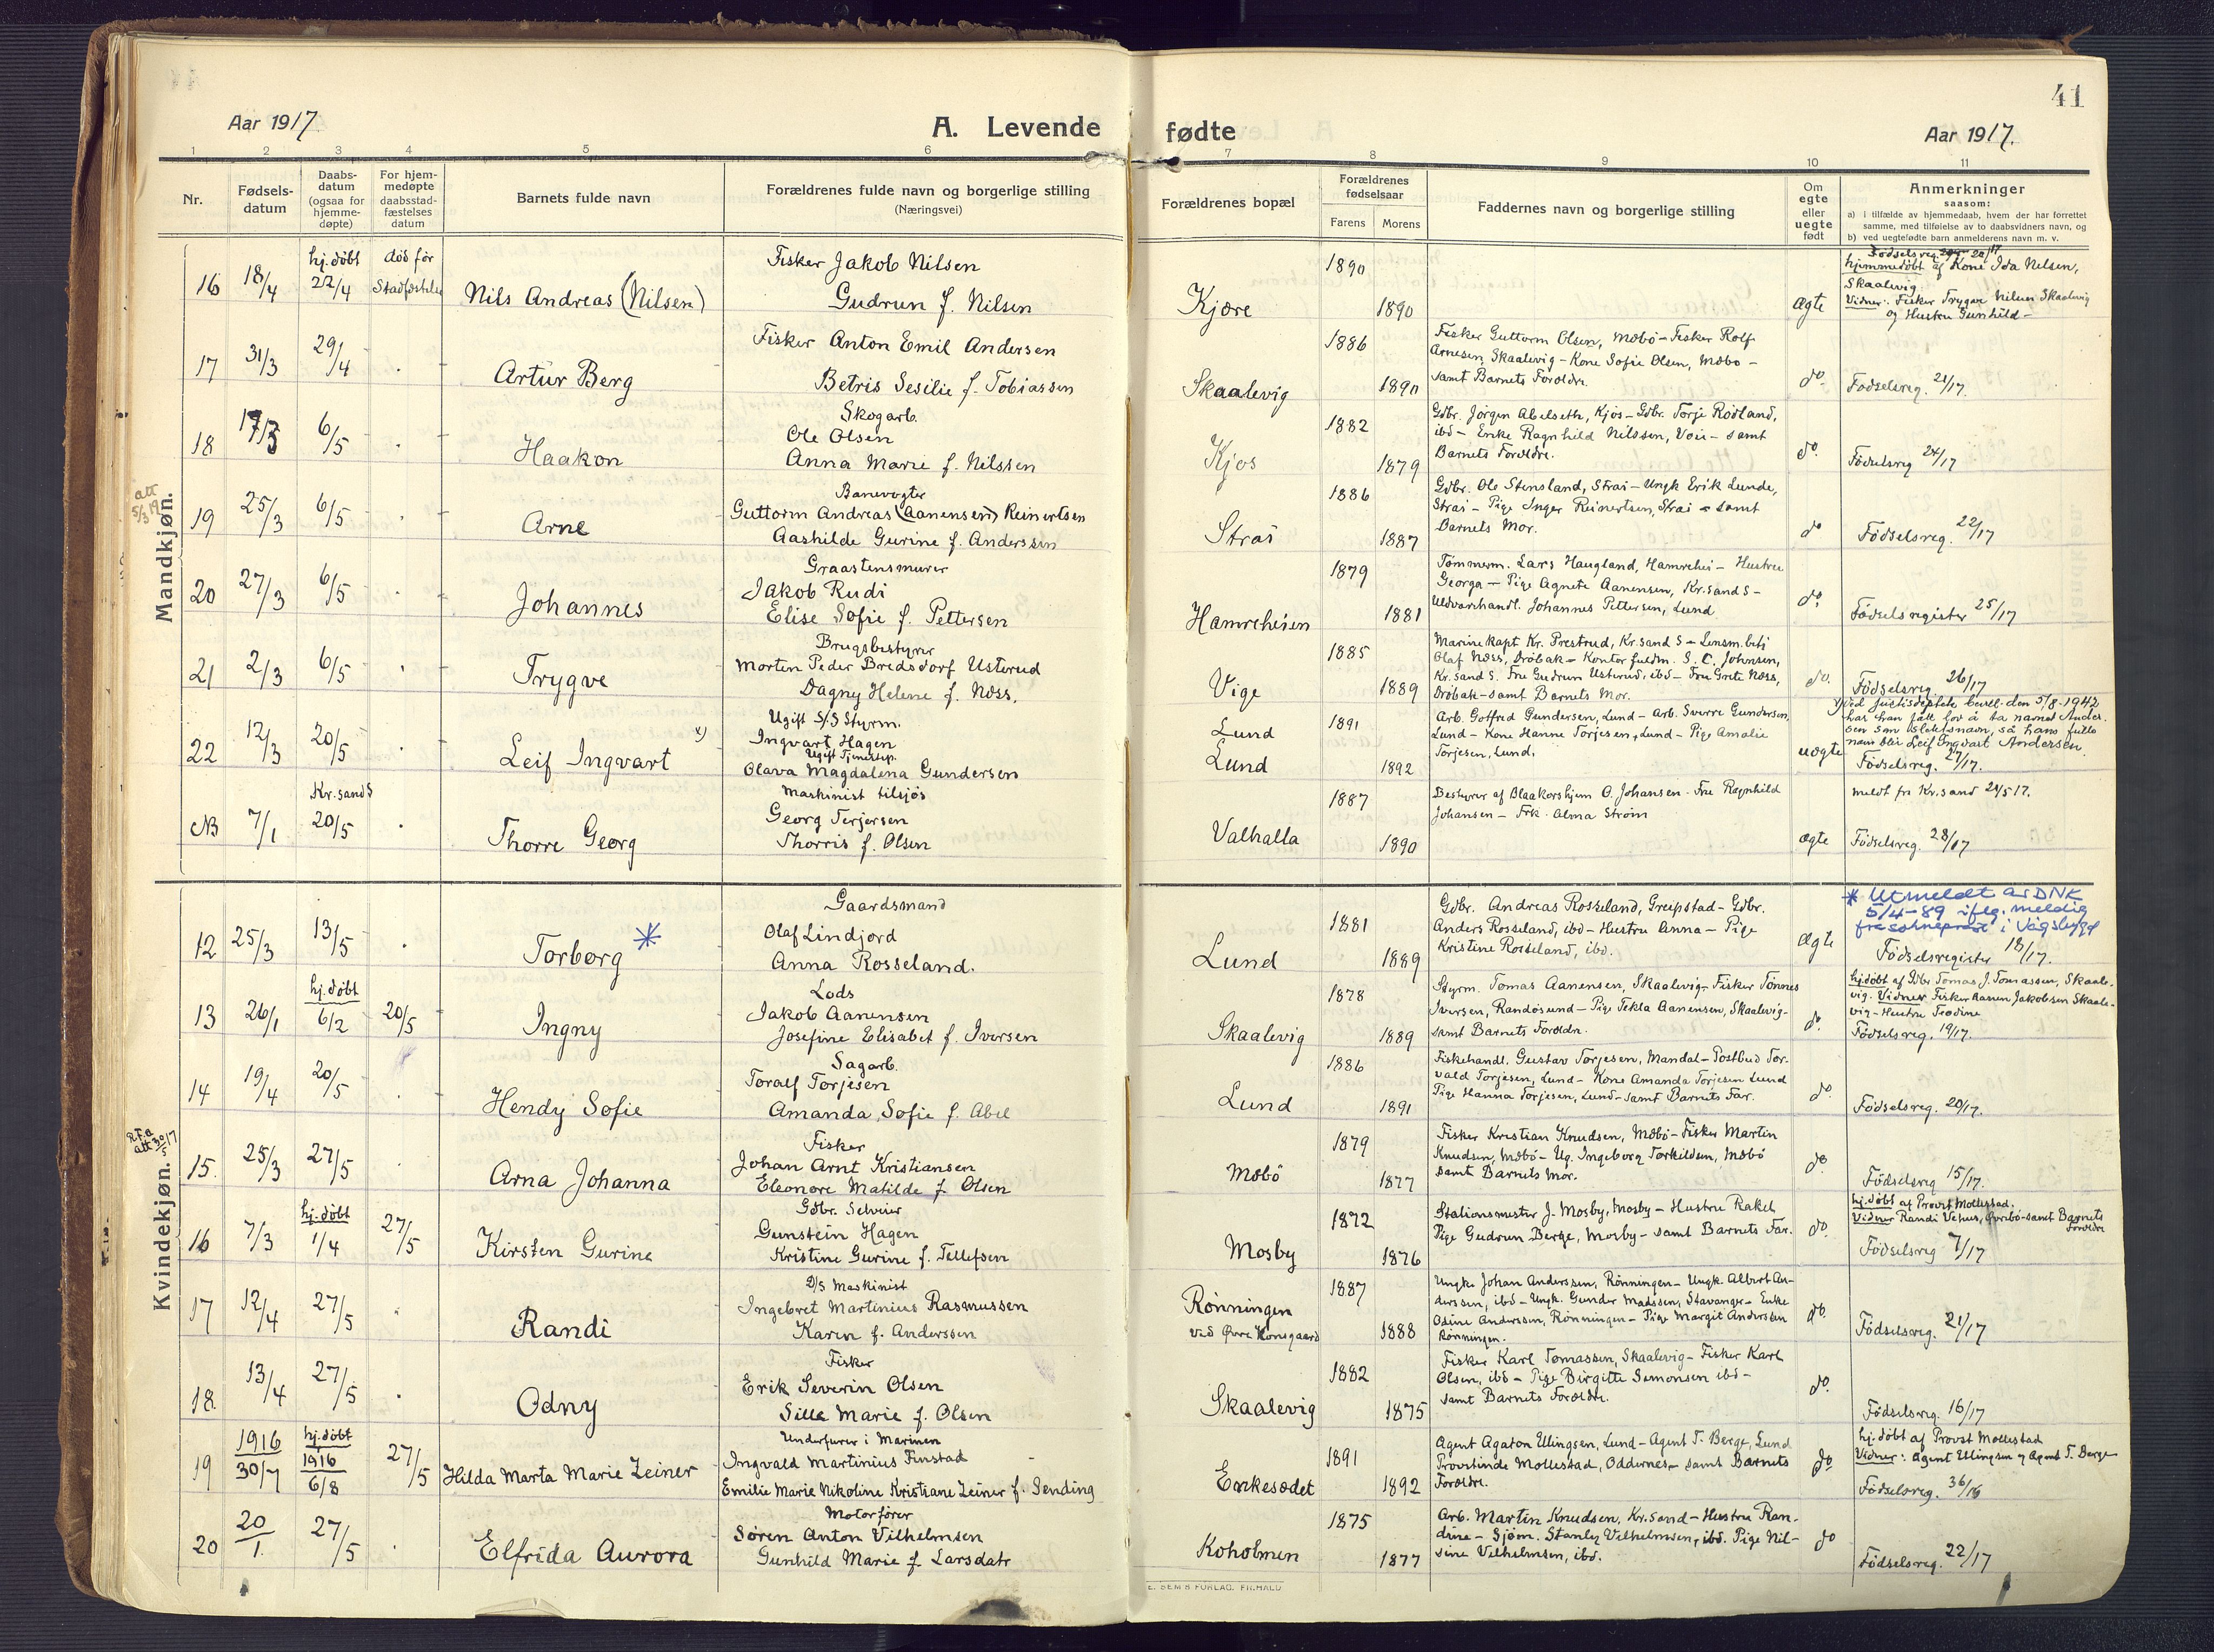 41
Aar 1917.
A. Levende
fødte
Aar 1917.
1 2 3 4 5 6 7 8 9 10 11
Nr.
Fødsels-
datum
Daabs-
datum
(ogsaa for
hjemme-
døpte)
For hjem-
medøpte
daabsstad-
fæstelses
datum
Barnets fulde navn
Forældrenes fulde navn og borgerlige stilling
(Næringsvei)
Forældrenes bopæl
Forældrenes
fødselsaar
Farens Morens
Faddernes navn og borgerlige stilling
Om
egte
eller
uegte
født
Anmerkninger
saasom:
a) i tilfælde av hjemmedaab, hvem der har forrettet
samme, med tilføielse av to daabsvidners navn, og
b) ved uegtefødte barn anmelderens navn m. v.
Mandkjøn.
16 18/4 hj.døbt 22/4 død før
Nils Andreas (Nilsen)
Fisker Jakob Nilsen
Gudrun f. Nilsen
Kjøre
1890
1890
Ægte
hjemmedøbt af Kone Ida Nilsen,
Skaalevig.
Vidner: Fisker Trygve Nilsen Skaalevig
og Hustru Gunhild -
17 31/3 29/4
Artur Berg
Fisker Anton Emil Andersen
Betris Sesilie f. Tobiassen
Skaalevig
1886
1890
Fisker Guttorm Olsen, Mæbø - Fisker Rolf
Arnesen, Skaalevig - Kone Sofie Olsen, Mæbø -
samt Barnets Forældre.
do.
Fødselsreg. 21/17.
18 17/3 6/5
Haakon
Skogarb.
Ole Olsen
Anna Marie f. Nilssen
Kjos
1882
1879
Gdbr. Jørgen Abelseth, Kjos - Gdbr. Torje Rødland,
ibd - Enke Ragnhild Nilssen, Voie - samt
Barnets Forældre.
do.
Fødselsreg 24/17
att
5/3 19
19 25/3 6/5
Arne
Banevogter
Guttorm Andreas (Aanensen) Reinertsen
Aashilde Gurine f. Anderssen
Strai
1886
1887
Gdbr. Ole Stensland, Strai - Ungk Erik Lunde,
Strai - Pige Inger Reinertsen, Strai - samt
Barnets Mor.
do
Fødselsreg. 22/17
20 27/3 6/5
Johannes
Graastensmurer
Jakob Rudi
Elise Sofie f. Pettersen
Hamreheien
1879
1881
Tømmerm. Lars Haugland, Hamrehei - Hustru
Georga - Pige Agnete Aanensen, Kr.sand S -
Uldvarehandl. Johannes Pettersen, Lund
do.
Fødselsregister 25/17
21 2/3 6/5
Trygve
Brugsbestyrer
Morten Peder Bredsdorf Usterud
Dagny Helene f. Næss.
Vige
1885
1889
Marinekapt Kr. Prestrud, Kr.sand S - Lensm.betj
Olaf Næss, Drøbak - Kontorfuldm. S. C. Johnsen,
Kr.sand S. Fru Gudrun Usterud, ibd - Fru Grete Næss,
Drøbak - samt Barnets Mor.
do.
Fødselsreg. 26/17
22 12/3 20/5
Leif Ingvart x)
Ugift S/S Styrm.
Ingvart Hagen
Ugift Tjenestep.
Olava Magdalena Gundersen
Lund
Lund
1891
1892
Arb. Gotfred Gundersen, Lund - Arb. Sverre Gundersen,
Lund - Kone Hanne Torjesen, Lund - Pige Amalie
Torjesen, Lund.
uægte
x) Ved Justisdeptets bevill. den 5/8-1942
har han fått lov å ta navnet Ander-
sen som slektsnavn, så hans fulle
navn blir Leif Ingvart Andersen.
Fødselsreg. 27/17.
NB 7/1 Kr.sand S 20/5
Thorre Georg
Maskinist tilsjøs
Georg Terjersen
Thorris f. Olsen
Valhalla
1887
1890
Bestyrer af Blaakorshjem O. Johansen - Fru Ragnhild
Johansen - Frk. Alma Strøm
ægte
meldt fra Kr.sand 24/5 17.
Fødselsreg. 28/17
Kvindekjøn.
12 25/3 13/5
Torborg *
Gaardsmand
Olaf Lindjord
Anna Rosseland.
Lund
1881
1889
Gdbr. Andreas Rosseland, Greipstad - Gdbr.
Anders Rosseland, ibd - Hustru Anna - Pige
Kristine Rosseland, ibd.
Ægte
* Utmeldt av DNK
5/4-89 iflg. melding
fra sokneprest i Vågsbygd
Fødselsregister 18/17.
13 26/1 hj.døbt 6/2 20/5
Ingny
Lods
Jakob Aanensen
Josefine Elisabet f. Iversen
Skaalevig
1878
1889
Styrm. Tomas Aanensen, Skaalevig - Fisker Tønnes
Iversen, Randøsund - Pige Tekla Aanensen, Skaalevig -
samt Barnets Forældre.
do.
hj.døbt af Gdbr Tomas J. Tomassen, Skaale-
vig. Vidner Fisker Aanen Jakobsen Skaale-
vig - Hustru Tiodine
Fødselsreg. 19/17.
14 19/4 20/5
Hendy Sofie
Sagarb.
Toralf Torjesen
Amanda Sofie f. Abel
Lund
1886
1891
Fiskehandl. Gustav Torjesen, Mandal - Postbud Tor-
vald Torjesen, Lund - Kone Amanda Torjesen Lund
Pige Hanna Torjesen, Lund - samt Barnets Far.
do.
Fødselsreg. 20/17.
att 30/5 17
15. 25/3 27/5
Arna Johanna
Fisker
Johan Arnt Kristiansen
Eleonore Matilde f. Olsen
Mæbø
1879
1877
Fisker Kristian Knudsen, Mæbø - Fisker Martin
Knudsen, Mæbø - Ug. Ingeborg Torkildsen, Mæbø
samt Barnets Mor.
do.
Fødselsreg 15/17.
16 7/3 hj.døbt 1/4 27/5
Kirsten Gurine
Gdbr. Selveier
Gunstein Hagen
Kristine Gurine f. Tellefsen
Mosby
1872
1876
Stationsmester J. Mosby, Mosby - Hustru Rakel
Pige Gudrun Berge, Mosby - samt Barnets Far.
do.
hj.døbt af Provst Mollestad.
Vidner Randi Vehus, Øvrebø - samt Barnets
Forældre
Fødselsreg 7/17
17 12/4 27/5
Randi
D/S Maskinist
Ingebret Martinius Rasmussen
Karen f. Anderssen
Rønningen
ved Øvre Kongsgaard
1887
1888
Ungk. Johan Anderssen, Rønningen - Ungk. Albert An-
derssen, ibd - Ungk. Gunder Madssen, Stavanger - Enke
Osine Anderssen, Rønningen - Pige Margit Anderssen
Rønningen.
do.
Fødselsreg. 21/17
18. 13/4 27/5
Odny
Fisker
Erik Severin Olsen
Sille Marie f. Olsen
Skaalevig
1882
1875
Fisker Karl Tomassen, Skaalevig - Fisker Karl
Olsen, ibd - Pige Birgitte Simonsen ibd -
samt Barnets Forældre.
do.
Fødselsreg. 16/17
19 1916 30/7 hj.døbt 1916 6/8 27/5
Hilda Marta Marie Zeiner
Underfurer i Marinen
Ingvald Martinius Finstad
Emilie Marie Nikoline Kristiane Zeiner f. Gending
Enkesædet
1891
1892
Agent Agaton Ellingsen, Lund - Agent T. Berge, Lund
Provstinde Mollestad, Oddernes - samt Barnets
Forældre.
do
hj.døbt af Provst Mollestad
Vidner: Agent Ellingsen og Agent T. Berge
Fødselsreg. 36/16
20 20/1. 27/5
Elfrida Aurora
Motorfører
Søren Anton Vilhelmsen
Gunhild Marie f. Larsdatr
Koholmen
1875
1877
Arb. Martin Knudsen, Kr.sand - Hustru Ran-
dine - Sjøm. Stanley Vilhelmsen, ibd. Pige Nil-
sine Vilhelmsen, ibd.
do
Fødselsreg. 22/17
E. SEM'S FORLAG. FR.HALD